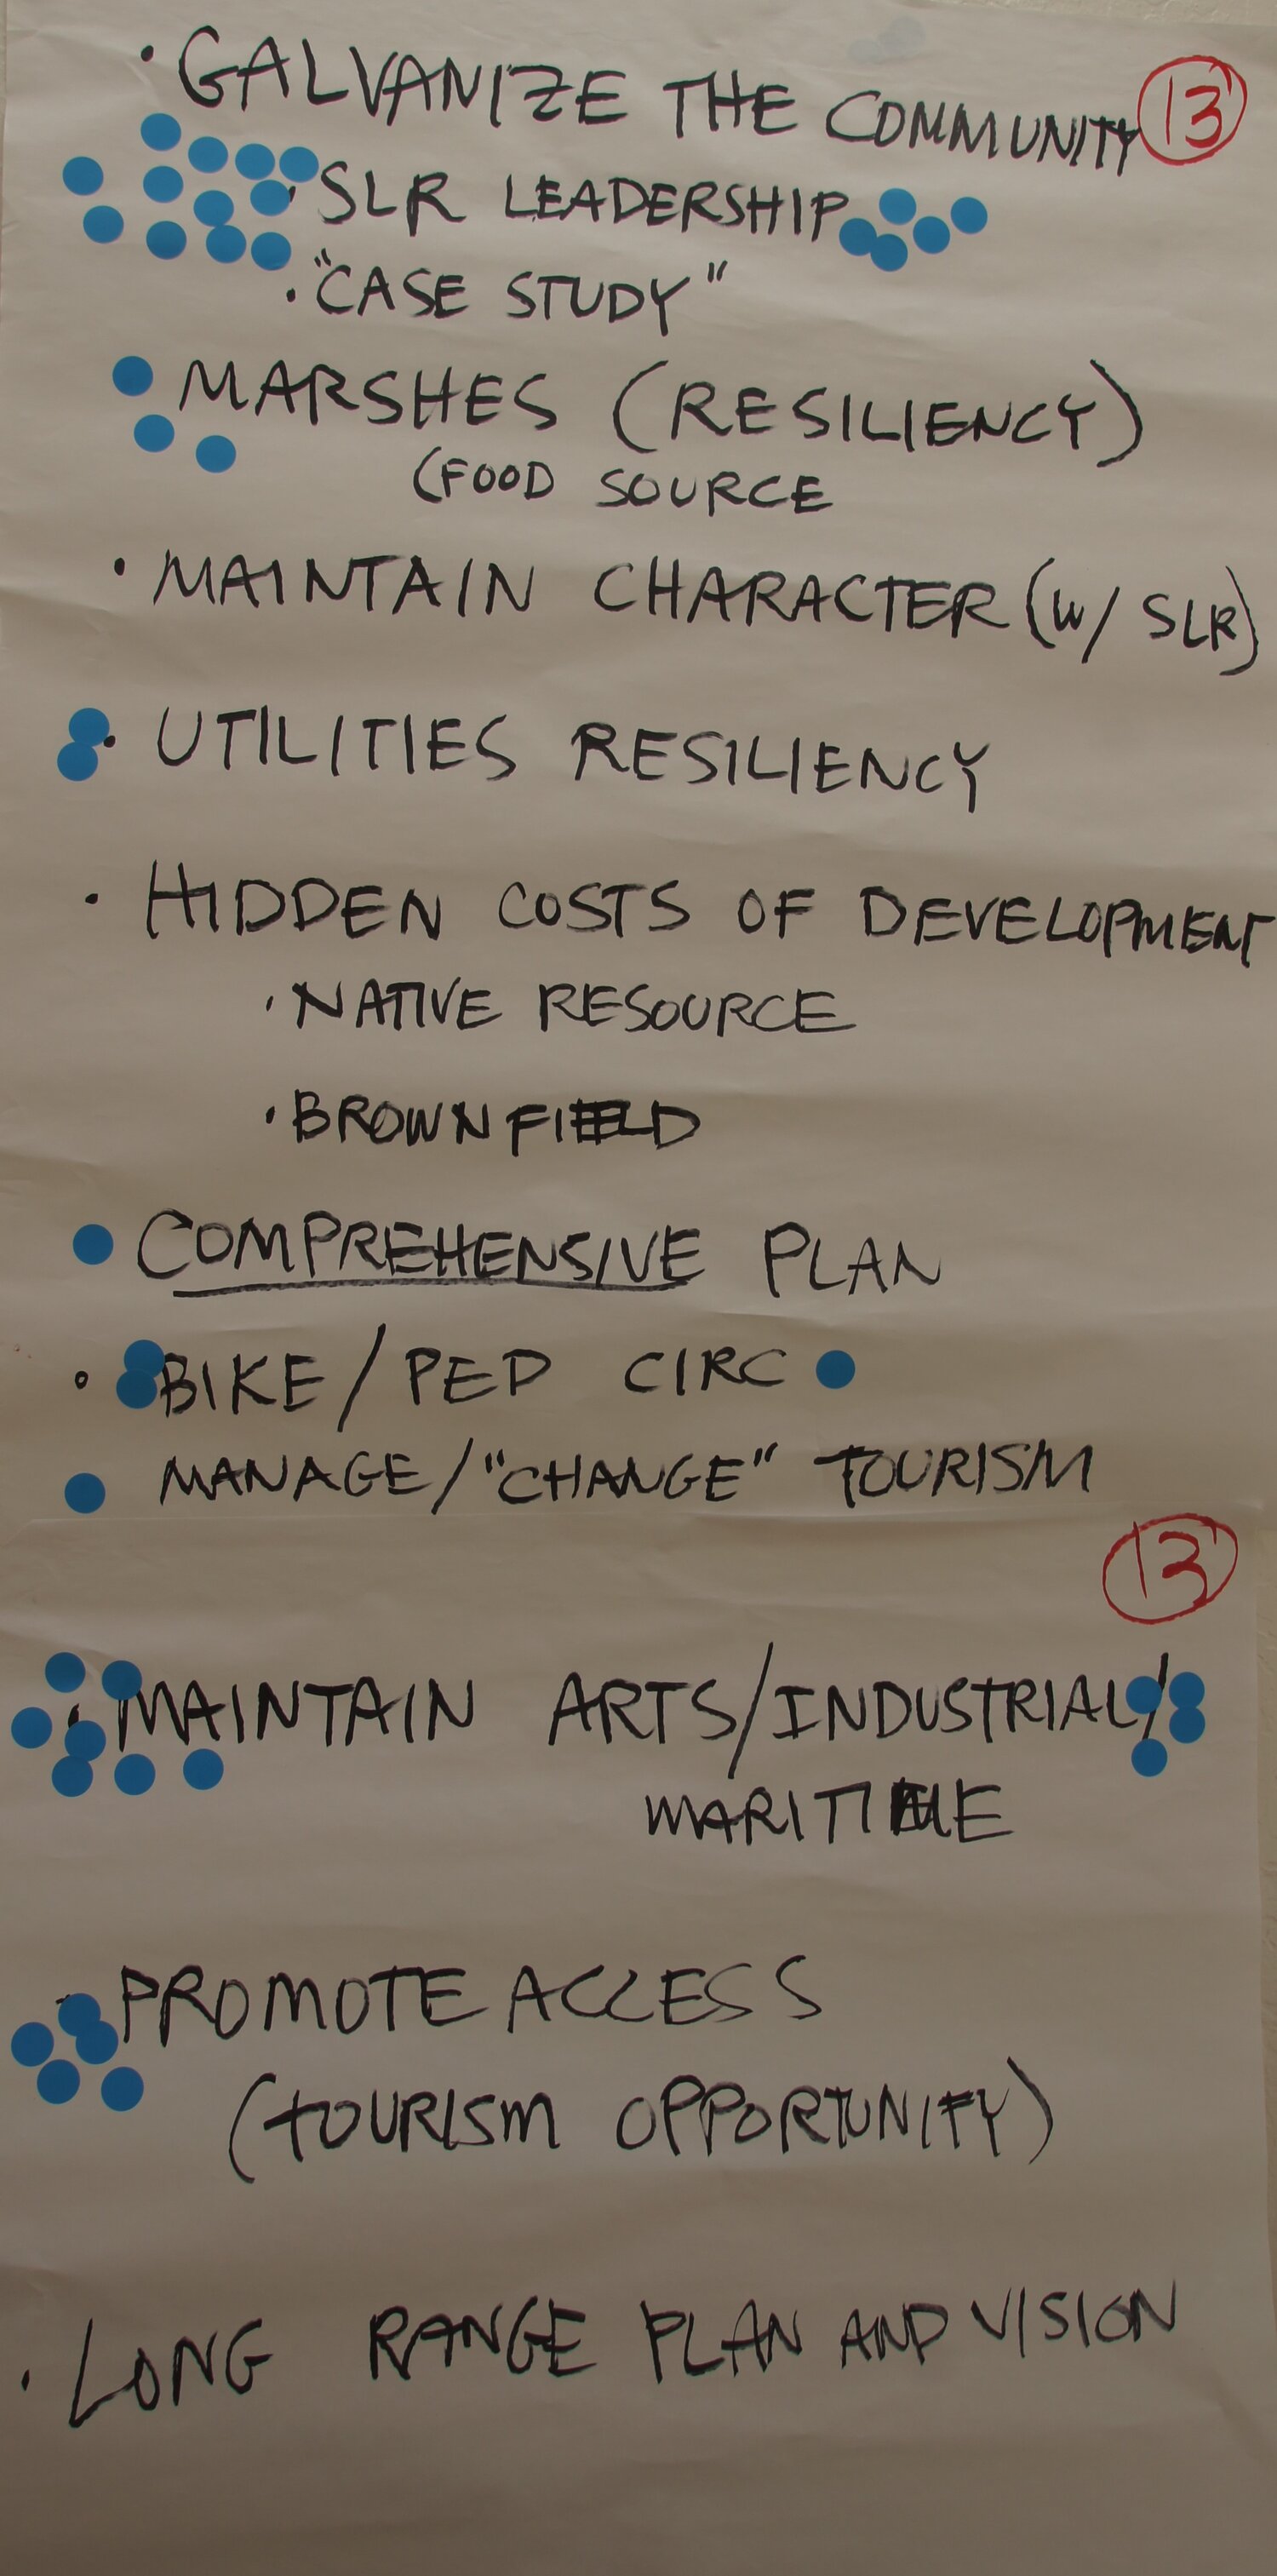 • GALVANIZE THE COMMUNITY 13
• SLR LEADERSHIP
• "CASE STUDY"
MARSHES (RESILIENCY)
(FOOD SOURCE
• MAINTAIN CHARACTER (W/ SLR)
• UTILITIES RESILIENCY
• HIDDEN COSTS OF DEVELOPMENT
• NATIVE RESOURCE
• BROWNFIELD
COMPREHENSIVE PLAN
• BIKE/PED CIRC
MANAGE/"CHANGE" TOURISM
13
• MAINTAIN ARTS/INDUSTRIAL/
MARITIME
• PROMOTE ACCESS
(TOURISM OPPORTUNITY)
• LONG RANGE PLAN AND VISION